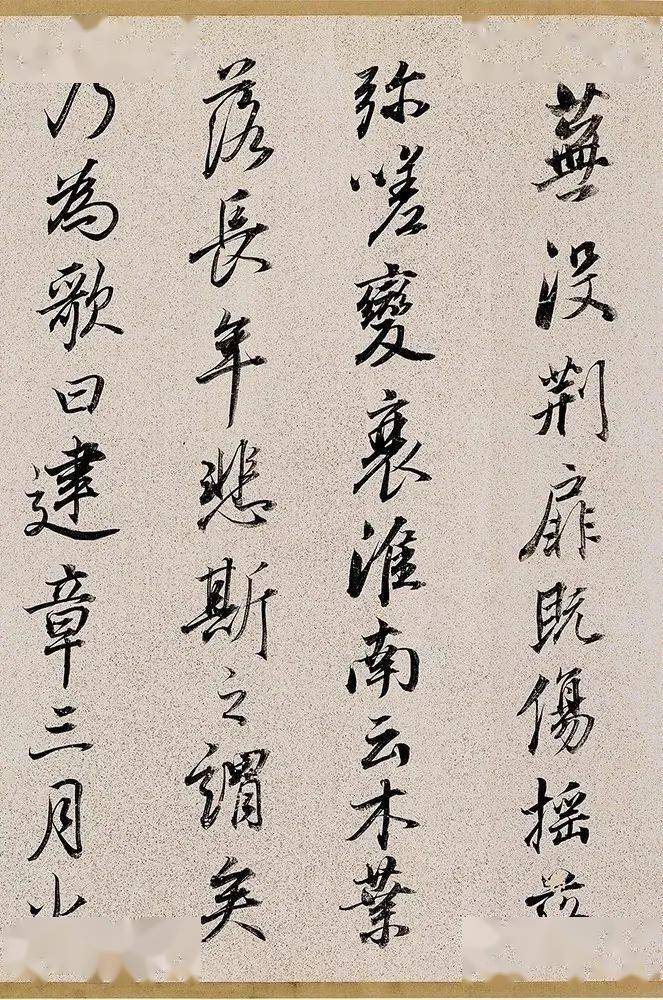 蕪没荊扉既傷搖落
弥嗟變衰淮南云木葉
落長年悲斯之謂矣
乃為歌曰建章三月火